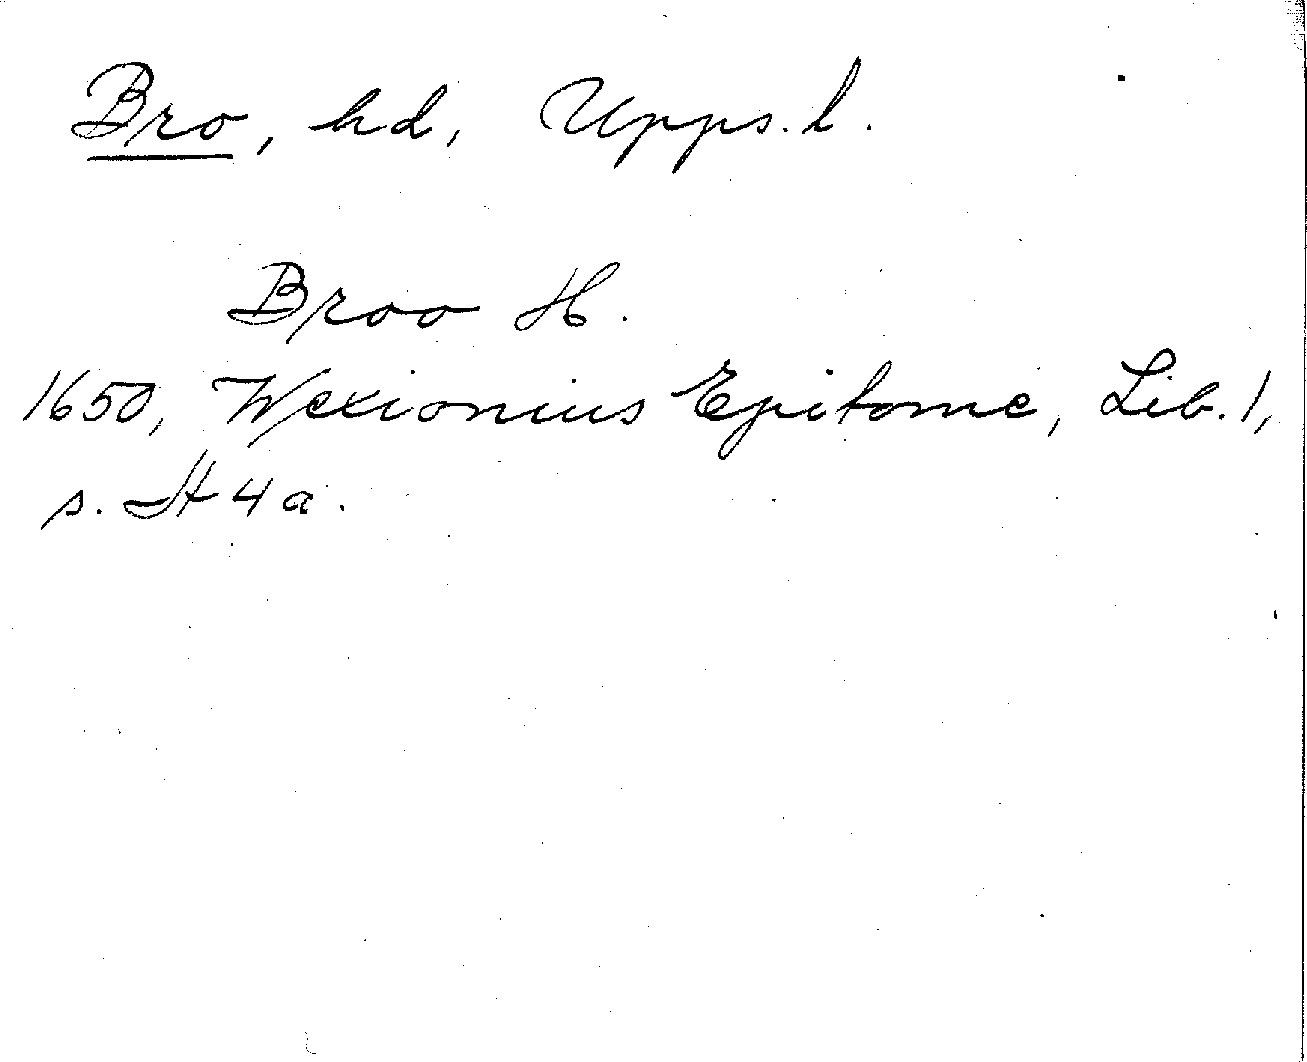 Bro, hd, Upps. l.
Broo H.
1650, Wexionius Epitome, Lib. 1,
s. H 4 a.